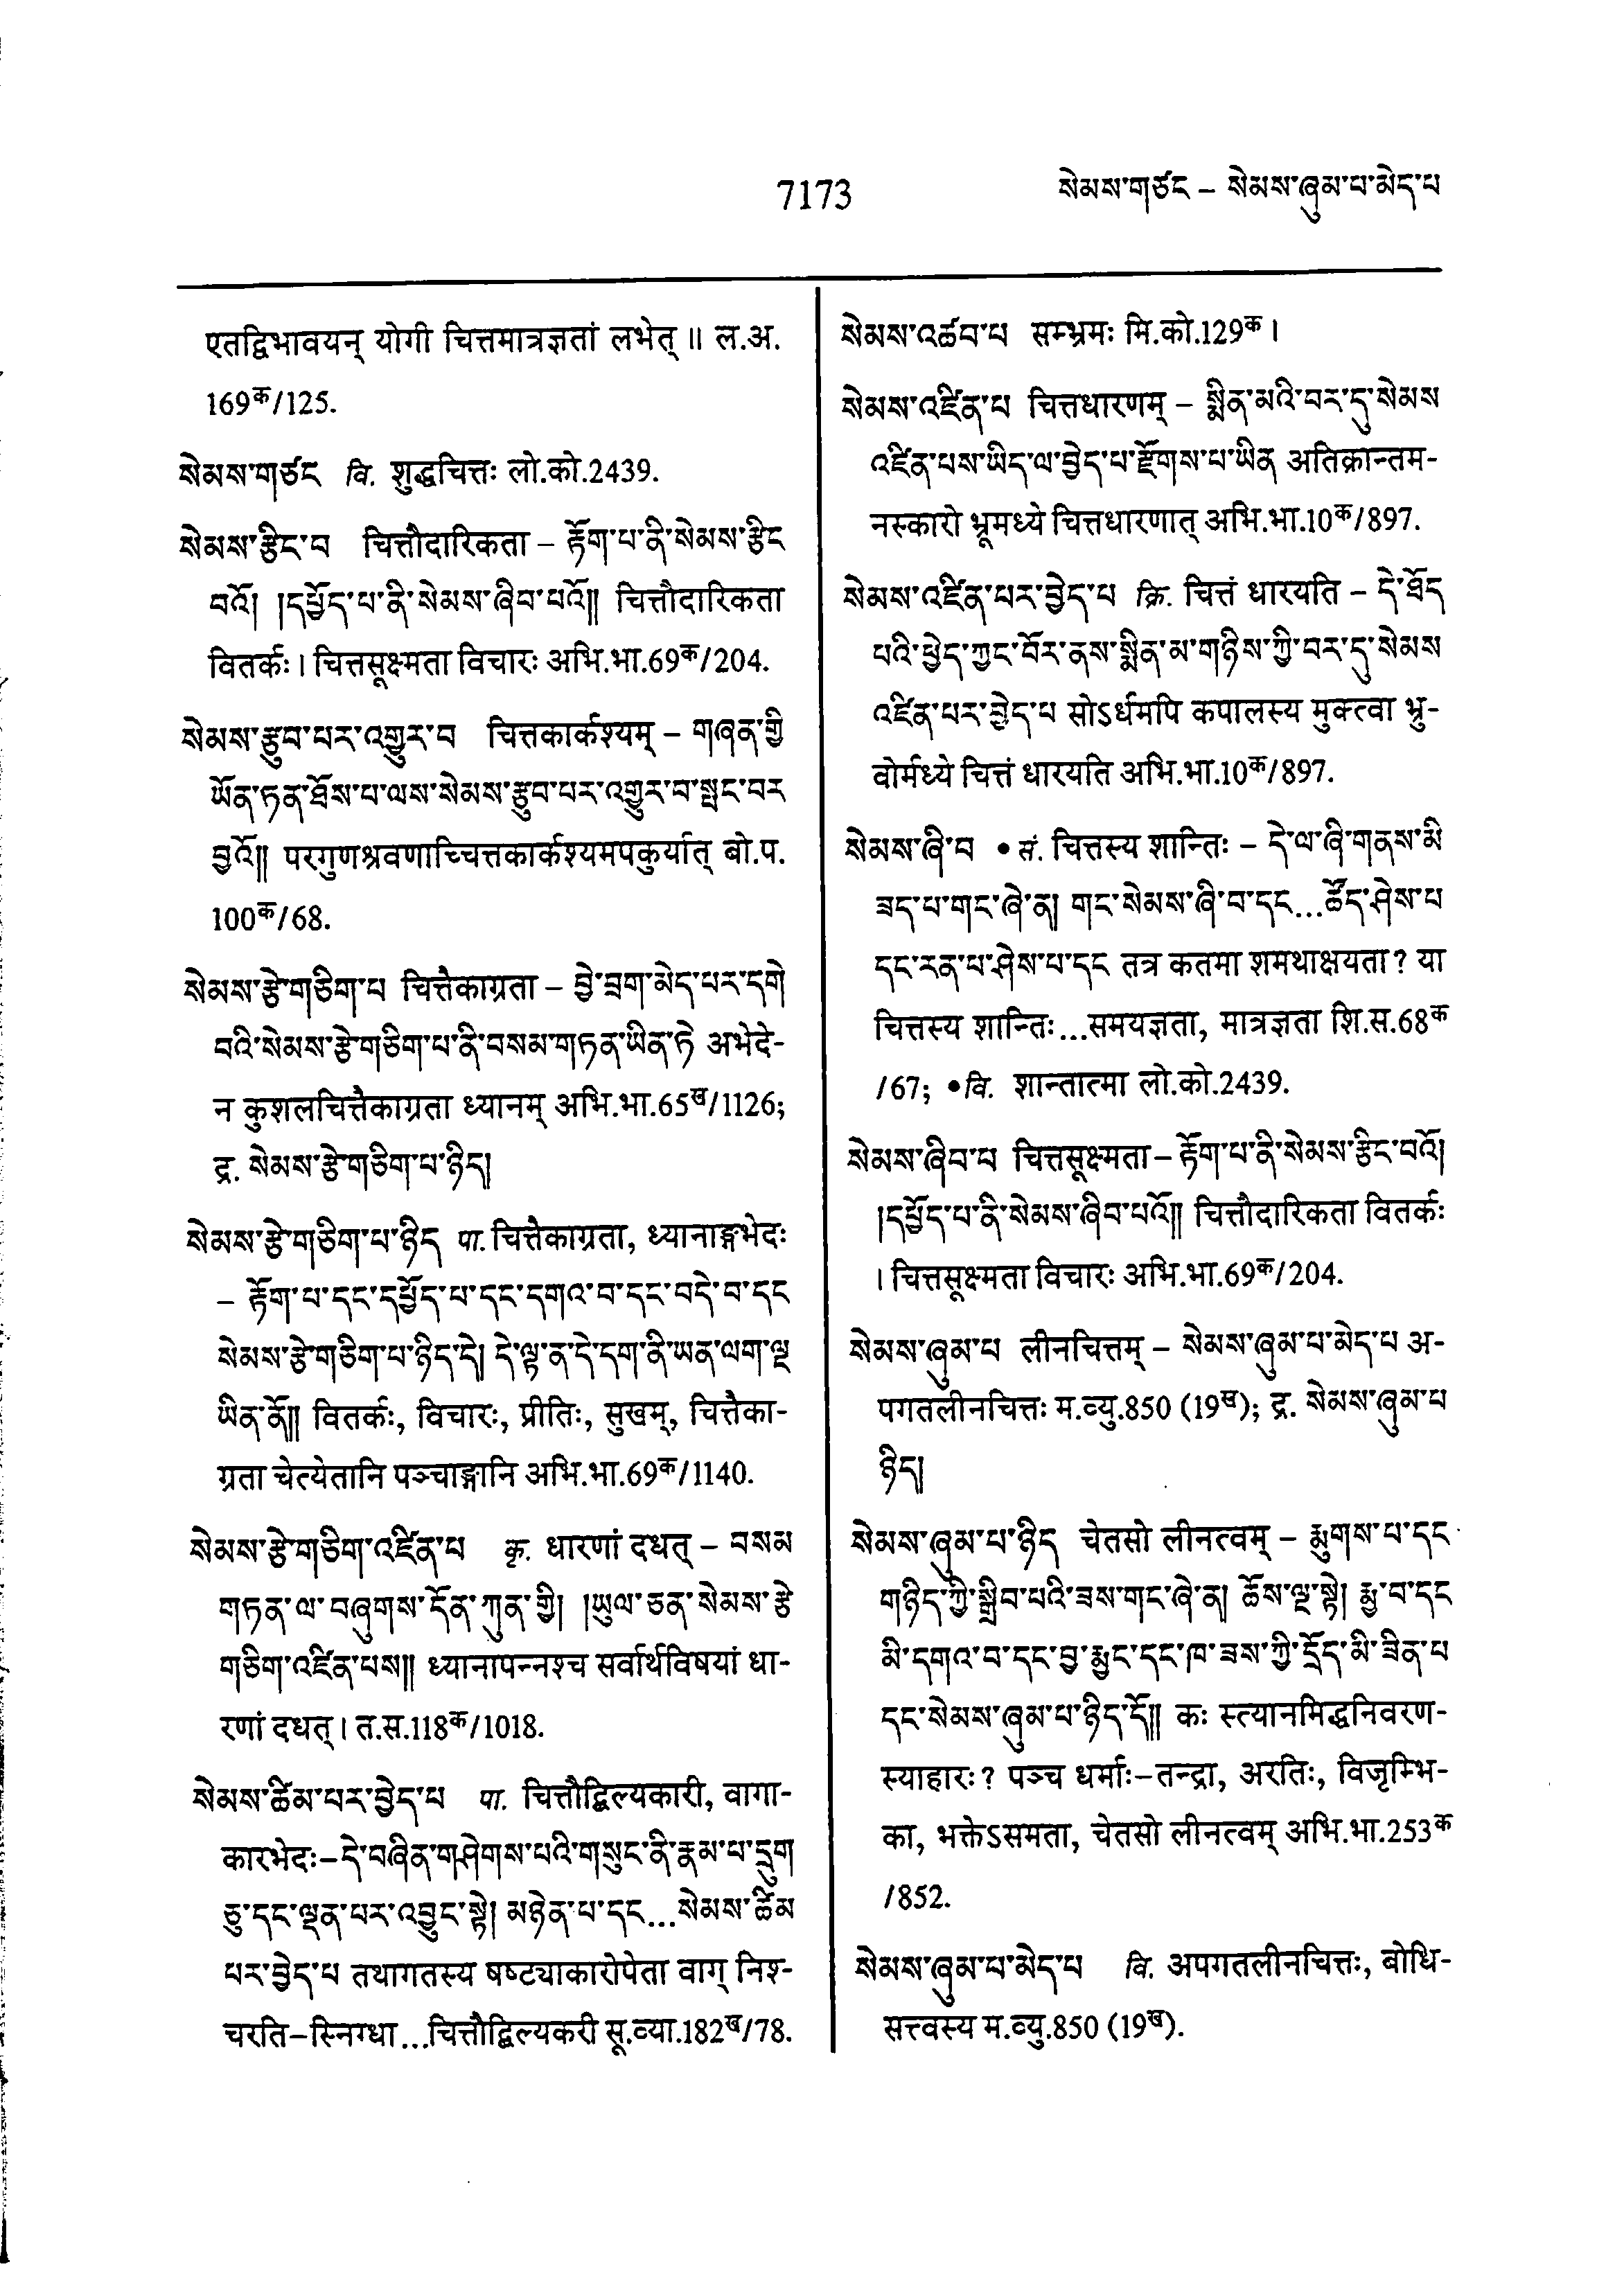 7173
སེམས་གཙང – སེམས་ཞུམ་པ་མེད་པ
एतद्विभावयन् योगी चित्तमात्रज्ञतां लभेत् ॥ ल.अ.
169क/125.
སེམས་གཙང वि. शुद्धचित्तः लो.को.2439.
སེམས་རྩིང་བ चित्तौदारिकता – རྟོག་པ་ནི་སེམས་རྩིང
བའོ། །དཔྱོད་པ་ནི་སེམས་ཞིབ་པའོ།། चित्तौदारिकता
वितर्कः । चित्तसूक्ष्मता विचारः अभि.भा.69क/204.
སེམས་རྩུབ་པར་འགྱུར་བ चित्तकार्कश्यम् – གཞན་གྱི
ཡོན་ཏན་ཐོས་པ་ལས་སེམས་རྩུབ་པར་འགྱུར་བ་སྤང་བར
བྱའོ།། परगुणश्रवणाच्चित्तकार्कश्यमपकुर्यात् बो.प.
100क/68.
སེམས་རྩེ་གཅིག་པ चित्तैकाग्रता – བྱེ་བྲག་མེད་པར་དགེ
བའི་སེམས་རྩེ་གཅིག་པ་ནི་བསམ་གཏན་ཡིན་ཏེ अभेदे-
न कुशलचित्तैकाग्रता ध्यानम् अभि.भा.65ख/1126;
द्र. སེམས་རྩེ་གཅིག་པ་ཉིད།
སེམས་རྩེ་གཅིག་པ་ཉིད पा. चित्तैकाग्रता, ध्यानाङ्गभेदः
– རྟོག་པ་དང་དཔྱོད་པ་དང་དགའ་བ་དང་བདེ་བ་དང
སེམས་རྩེ་གཅིག་པ་ཉིད་དེ། དེ་ལྟ་ན་དེ་དག་ནི་ཡན་ལག་ལྔ
ཡིན་ནོ།། वितर्कः, विचारः, प्रीतिः, सुखम्, चित्तैका-
ग्रता चेत्येतानि पञ्चाङ्गानि अभि.भा.69क/1140.
སེམས་རྩེ་གཅིག་འཛིན་པ कृ. धारणां दधत् – བསམ
གཏན་ལ་བཞུགས་དོན་ཀུན་གྱི། །ཡུལ་ཅན་སེམས་རྩེ
གཅིག་འཛིན་པས།། ध्यानापन्नश्च सर्वार्थविषयां धा-
रणां दधत् । त.स.118क/1018.
སེམས་ཚིམ་པར་བྱེད་པ पा. चित्तौद्बिल्यकारी, वागा-
कारभेदः–དེ་བཞིན་གཤེགས་པའི་གསུང་ནི་རྣམ་པ་དྲུག
ཅུ་དང་ལྡན་པར་འབྱུང་སྟེ། མཉེན་པ་དང...སེམས་ཚིམ
པར་བྱེད་པ तथागतस्य षष्ट्याकारोपेता वाग् निश्-
चरति–स्निग्धा...चित्तौद्बिल्यकरी सू.व्या.182ख/78.
སེམས་འཚབ་པ सम्भ्रमः मि.को.129क ।
སེམས་འཛིན་པ चित्तधारणम् – སྨིན་མའི་བར་དུ་སེམས
འཛིན་པས་ཡིད་ལ་བྱེད་པ་རྫོགས་པ་ཡིན अतिक्रान्तम-
नस्कारो भ्रूमध्ये चित्तधारणात् अभि.भा.10क/897.
སེམས་འཛིན་པར་བྱེད་པ क्रि. चित्तं धारयति – དེ་ཐོད
པའི་ཕྱེད་ཀྱང་བོར་ནས་སྨིན་མ་གཉིས་ཀྱི་བར་དུ་སེམས
འཛིན་པར་བྱེད་པ सोऽर्धमपि कपालस्य मुक्त्वा भ्रु-
वोर्मध्ये चित्तं धारयति अभि.भा.10क/897.
སེམས་ཞི་བ • सं. चित्तस्य शान्तिः – དེ་ལ་ཞི་གནས་མི
ཟད་པ་གང་ཞེ་ན། གང་སེམས་ཞི་བ་དང...ཚོད་ཤེས་པ
དང་རན་པ་ཤེས་པ་དང तत्र कतमा शमथाक्षयता? या
चित्तस्य शान्तिः...समयज्ञता, मात्रज्ञता शि.स.68क
/67; •वि. शान्तात्मा लो.को.2439.
སེམས་ཞིབ་པ चित्तसूक्ष्मता– རྟོག་པ་ནི་སེམས་རྩིང་བའོ།
།དཔྱོད་པ་ནི་སེམས་ཞིབ་པའོ།། चित्तौदारिकता वितर्कः
। चित्तसूक्ष्मता विचारः अभि.भा.69क/204.
སེམས་ཞུམ་པ लीनचित्तम् – སེམས་ཞུམ་པ་མེད་པ अ-
पगतलीनचित्तः म.व्यु.850 (19ख); द्र. སེམས་ཞུམ་པ
ཉིད།
སེམས་ཞུམ་པ་ཉིད चेतसो लीनत्वम् – རྨུགས་པ་དང
གཉིད་ཀྱི་སྒྲིབ་པའི་ཟས་གང་ཞེ་ན། ཆོས་ལྔ་སྟེ། རྨྱ་བ་དང
མི་དགའ་བ་དང་བྱ་རྨྱང་དང་ཁ་ཟས་ཀྱི་དྲོད་མི་ཟིན་པ
དང་སེམས་ཞུམ་པ་ཉིད་དོ།། कः स्त्यानमिद्धनिवरण-
स्याहारः? पञ्च धर्माः–तन्द्रा, अरतिः, विजृम्भि-
का, भक्तेऽसमता, चेतसो लीनत्वम् अभि.भा.253क
/852.
སེམས་ཞུམ་པ་མེད་པ वि. अपगतलीनचित्तः, बोधि-
सत्त्वस्य म.व्यु.850 (19ख).